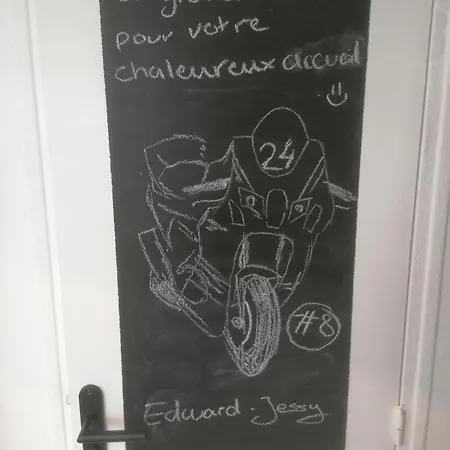 pour votre
chaleureux accueil
24
#8
Edward - Jessy